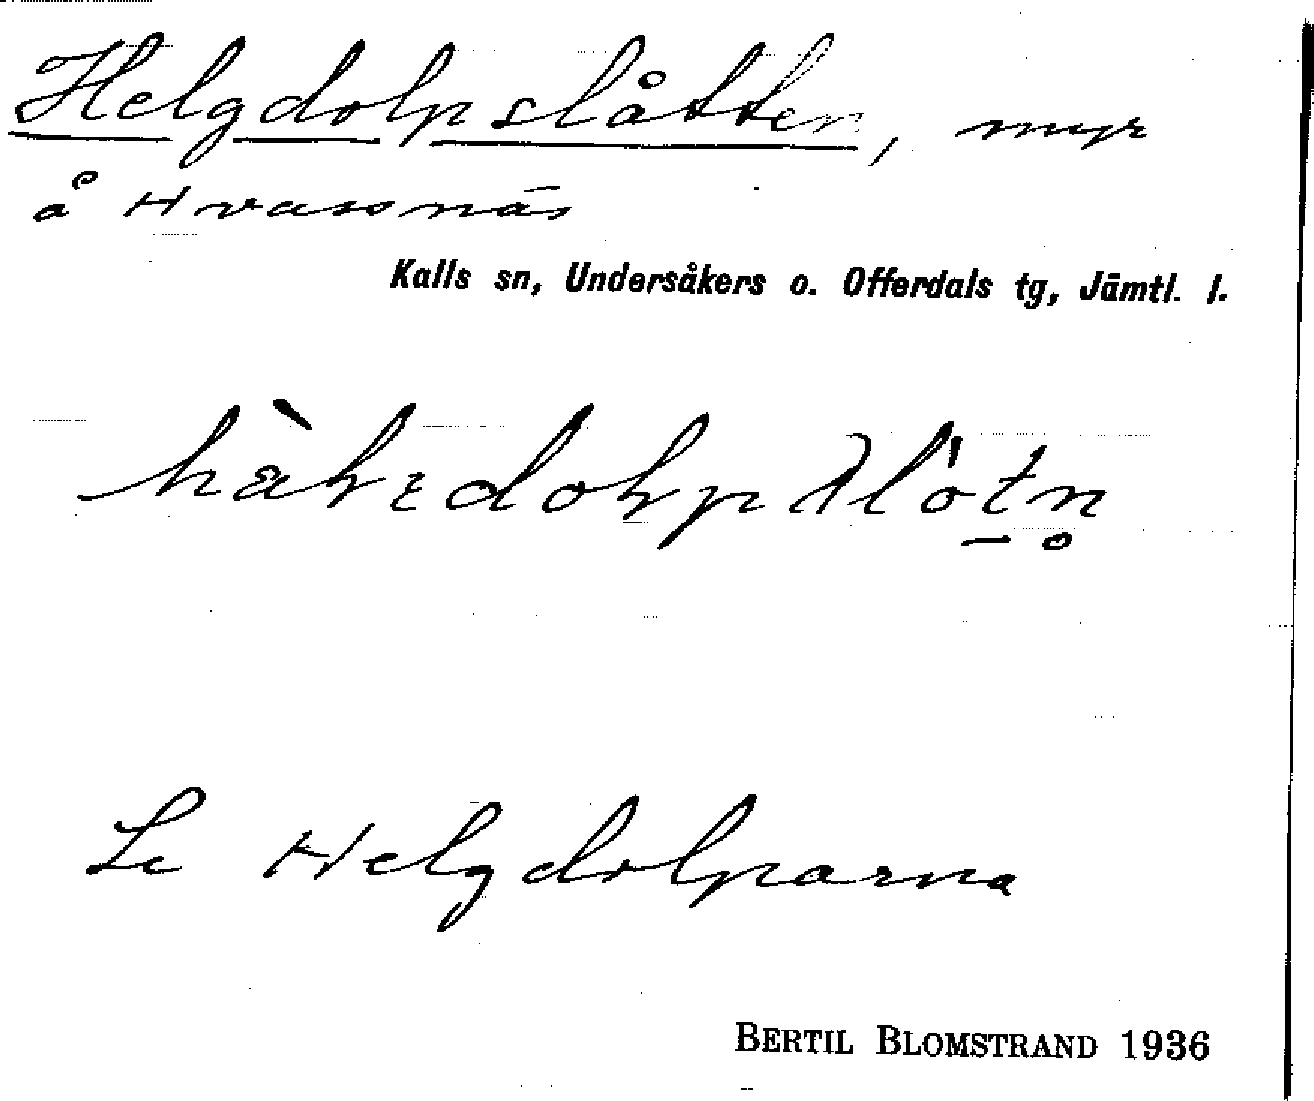 Helgdolpslåtten, myr
å Hvassnäs
Kalls sn, Undersåkers o. Offerdals tg, Jämtl. l.
Se Helgdolparna
BERTIL BLOMSTRAND 1936